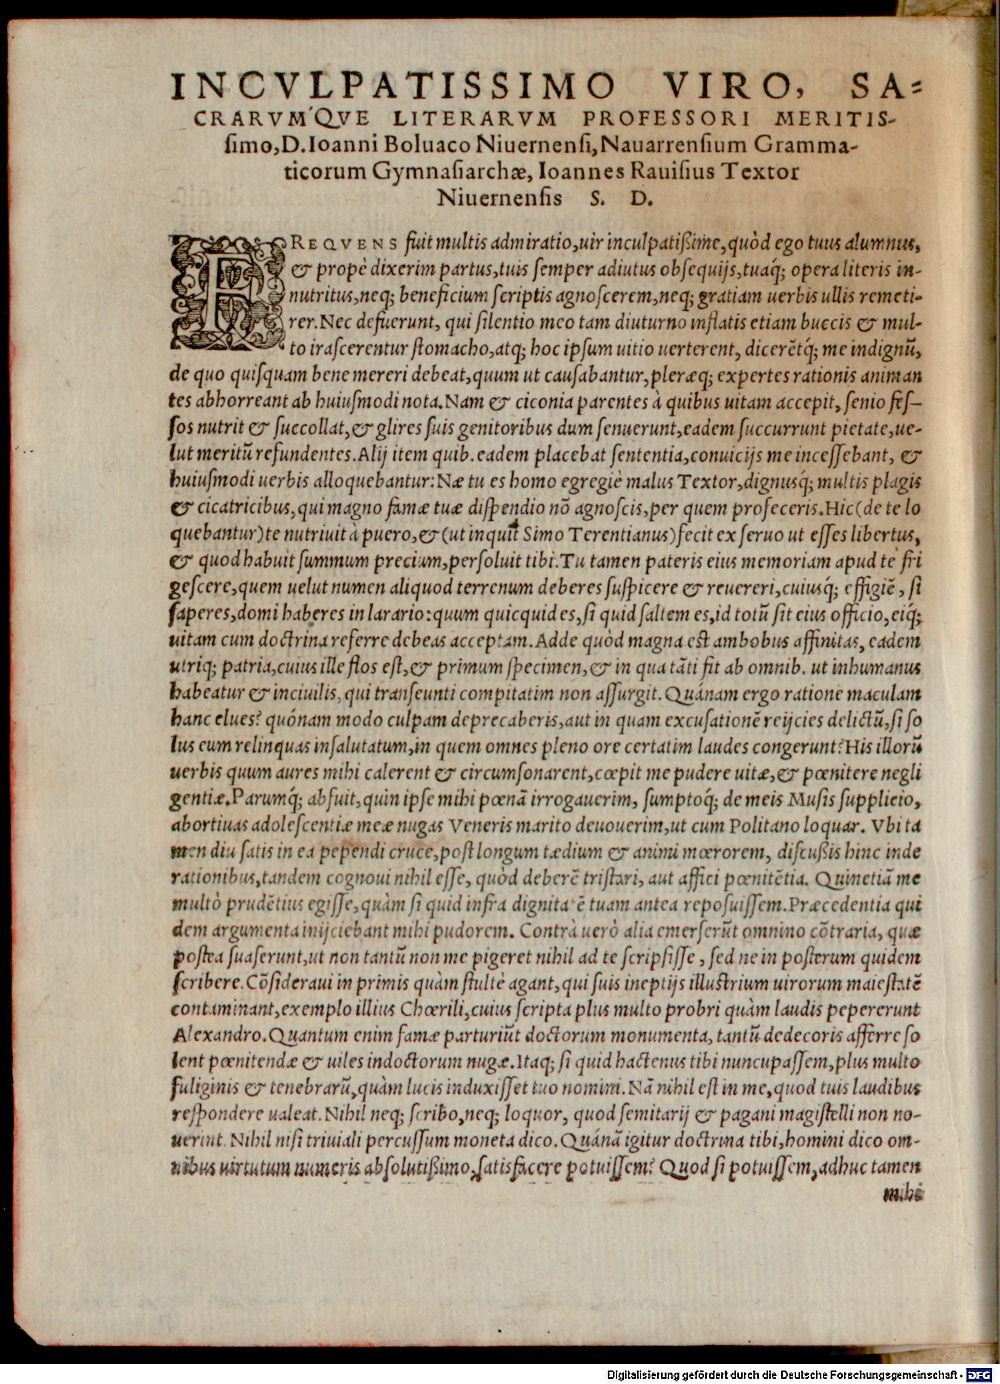 INCVLPATISSIMO VIRO, SA-
CRARVM'QVE LITERARVM PROFESSORI MERITIS-
ſimo, D. Ioanni Boluaco Niuernenſi, Nauarrenſium Gramma-
ticorum Gymnaſiarchæ, Ioannes Rauiſius Textor
Niuernenſis S. D.
FREQVENS fuit multis admiratio, uir inculpatißime, quòd ego tuus alumnus,
& propè dixerim partus, tuis ſemper adiutus obſequijs, tuaq; opera literis in-
nutritus, neq; beneficium ſcriptis agnoſcerem, neq; gratiam uerbis ullis remeti-
rer. Nec defuerunt, qui ſilentio meo tam diuturno inflatis etiam buccis & mul-
to iraſcerentur ſtomacho, atq; hoc ipſum uitio uerterent, dicerẽtq́; me indignũ,
de quo quiſquam bene mereri debeat, quum ut cauſabantur, pleræq; expertes rationis animan
tes abhorreant ab huiuſmodi nota. Nam & ciconia parentes à quibus uitam accepit, ſenio feſ-
ſos nutrit & ſuccollat, & glires ſuis genitoribus dum ſenuerunt, eadem ſuccurrunt pietate, ue-
lut meritũ refundentes. Alij item quib. eadem placebat ſententia, conuicijs me inceſſebant, &
huiuſmodi uerbis alloquebantur: Næ tu es homo egregiè malus Textor, dignusq́; multis plagis
& cicatricibus, qui magno famæ tuæ diſpendio nõ agnoſcis, per quem profeceris. Hic (de te lo
quebantur) te nutriuit à puero, & (ut inquit Simo Terentianus) fecit ex ſeruo ut eſſes libertus,
& quod habuit ſummum precium, perſoluit tibi. Tu tamen pateris eius memoriam apud te fri
geſcere, quem uelut numen aliquod terrenum deberes ſuſpicere & reuereri, cuiusq́; effigiẽ, ſi
ſaperes, domi haberes in larario: quum quicquid es, ſi quid ſaltem es, id totũ ſit eius officio, eiq́;
uitam cum doctrina referre debeas acceptam. Adde quòd magna eſt ambobus affinitas, eadem
utriq; patria, cuius ille flos eſt, & primum ſpecimen, & in qua tãti fit ab omnib. ut inhumanus
habeatur & inciuilis, qui tranſeunti compitatim non aſſurgit. Quánam ergo ratione maculam
hanc elues? quónam modo culpam deprecaberis, aut in quam excuſationẽ reijcies delictũ, ſi ſo
lus eum relinquas inſalutatum, in quem omnes pleno ore certatim laudes congerunt? His illorũ
uerbis quum aures mihi calerent & circumſonarent, cœpit me pudere uitæ, & pœnitere negli
gentiæ. Parumq́; abfuit, quin ipſe mihi pœnã irrogauerim, ſumptoq́; de meis Muſis ſupplicio,
abortiuas adoleſcentiæ meæ nugas Veneris marito deuouerim, ut cum Politano loquar. Vbi ta
men diu ſatis in ea pependi cruce, poſt longum tædium & animi mœrorem, diſcußis hinc inde
rationibus, tandem cognoui nihil eſſe, quòd deberẽ triſtari, aut affici pœnitẽtia. Quinetiã me
multò prudẽtius egiſſe, quàm ſi quid infra dignitatẽ tuam antea repoſuiſſem. Præcedentia qui
dem argumenta inijciebant mihi pudorem. Contrà uerò alia emerſerũt omnino cõtraria, quæ
poſtea ſuaſerunt, ut non tantũ non me pigeret nihil ad te ſcripſiſſe, ſed ne in poſterum quidem
ſcribere. Cõſideraui in primis quàm ſtultè agant, qui ſuis ineptijs illuſtrium uirorum maieſtatẽ
contaminant, exemplo illius Chœrili, cuius ſcripta plus multo probri quàm laudis pepererunt
Alexandro. Quantum enim famæ parturiũt doctorum monumenta, tantũ dedecoris afferre ſo
lent pœnitendæ & uiles indoctorum nugæ. Itaq; ſi quid hactenus tibi nuncupaſſem, plus multo
fuliginis & tenebrarũ, quàm lucis induxiſſet tuo nomini. Nã nihil eſt in me, quod tuis laudibus
reſpondere ualeat. Nihil neq; ſcribo, neq; loquor, quod ſemitarij & pagani magiſtelli non no-
uerint. Nihil niſi triuiali percuſſum moneta dico. Quánã igitur doctrina tibi, homini dico om-
nibus uirtutum numeris abſolutißimo, ſatisfacere potuiſſem? Quod ſi potuiſſem, adhuc tamen
mihi
Digitalisierung gefördert durch die Deutsche Forschungsgemeinschaft - DFG